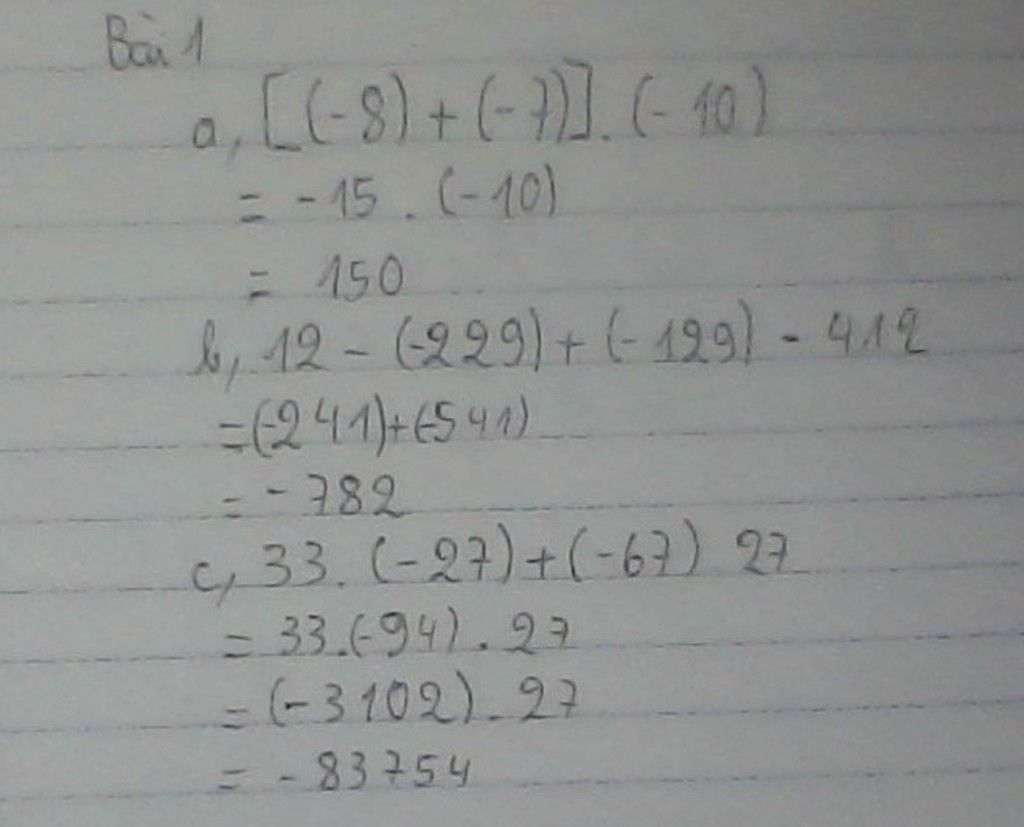 Bài 1
a, [(-8) + (-7)] . (-10)
= -15 . (-10)
= 150
b, 12 - (-229) + (-129) - 412
= (-241) + (-541)
= -782
c, 33 . (-27) + (-67) 27
= 33 . (-94) . 27
= (-3102) . 27
= -83754